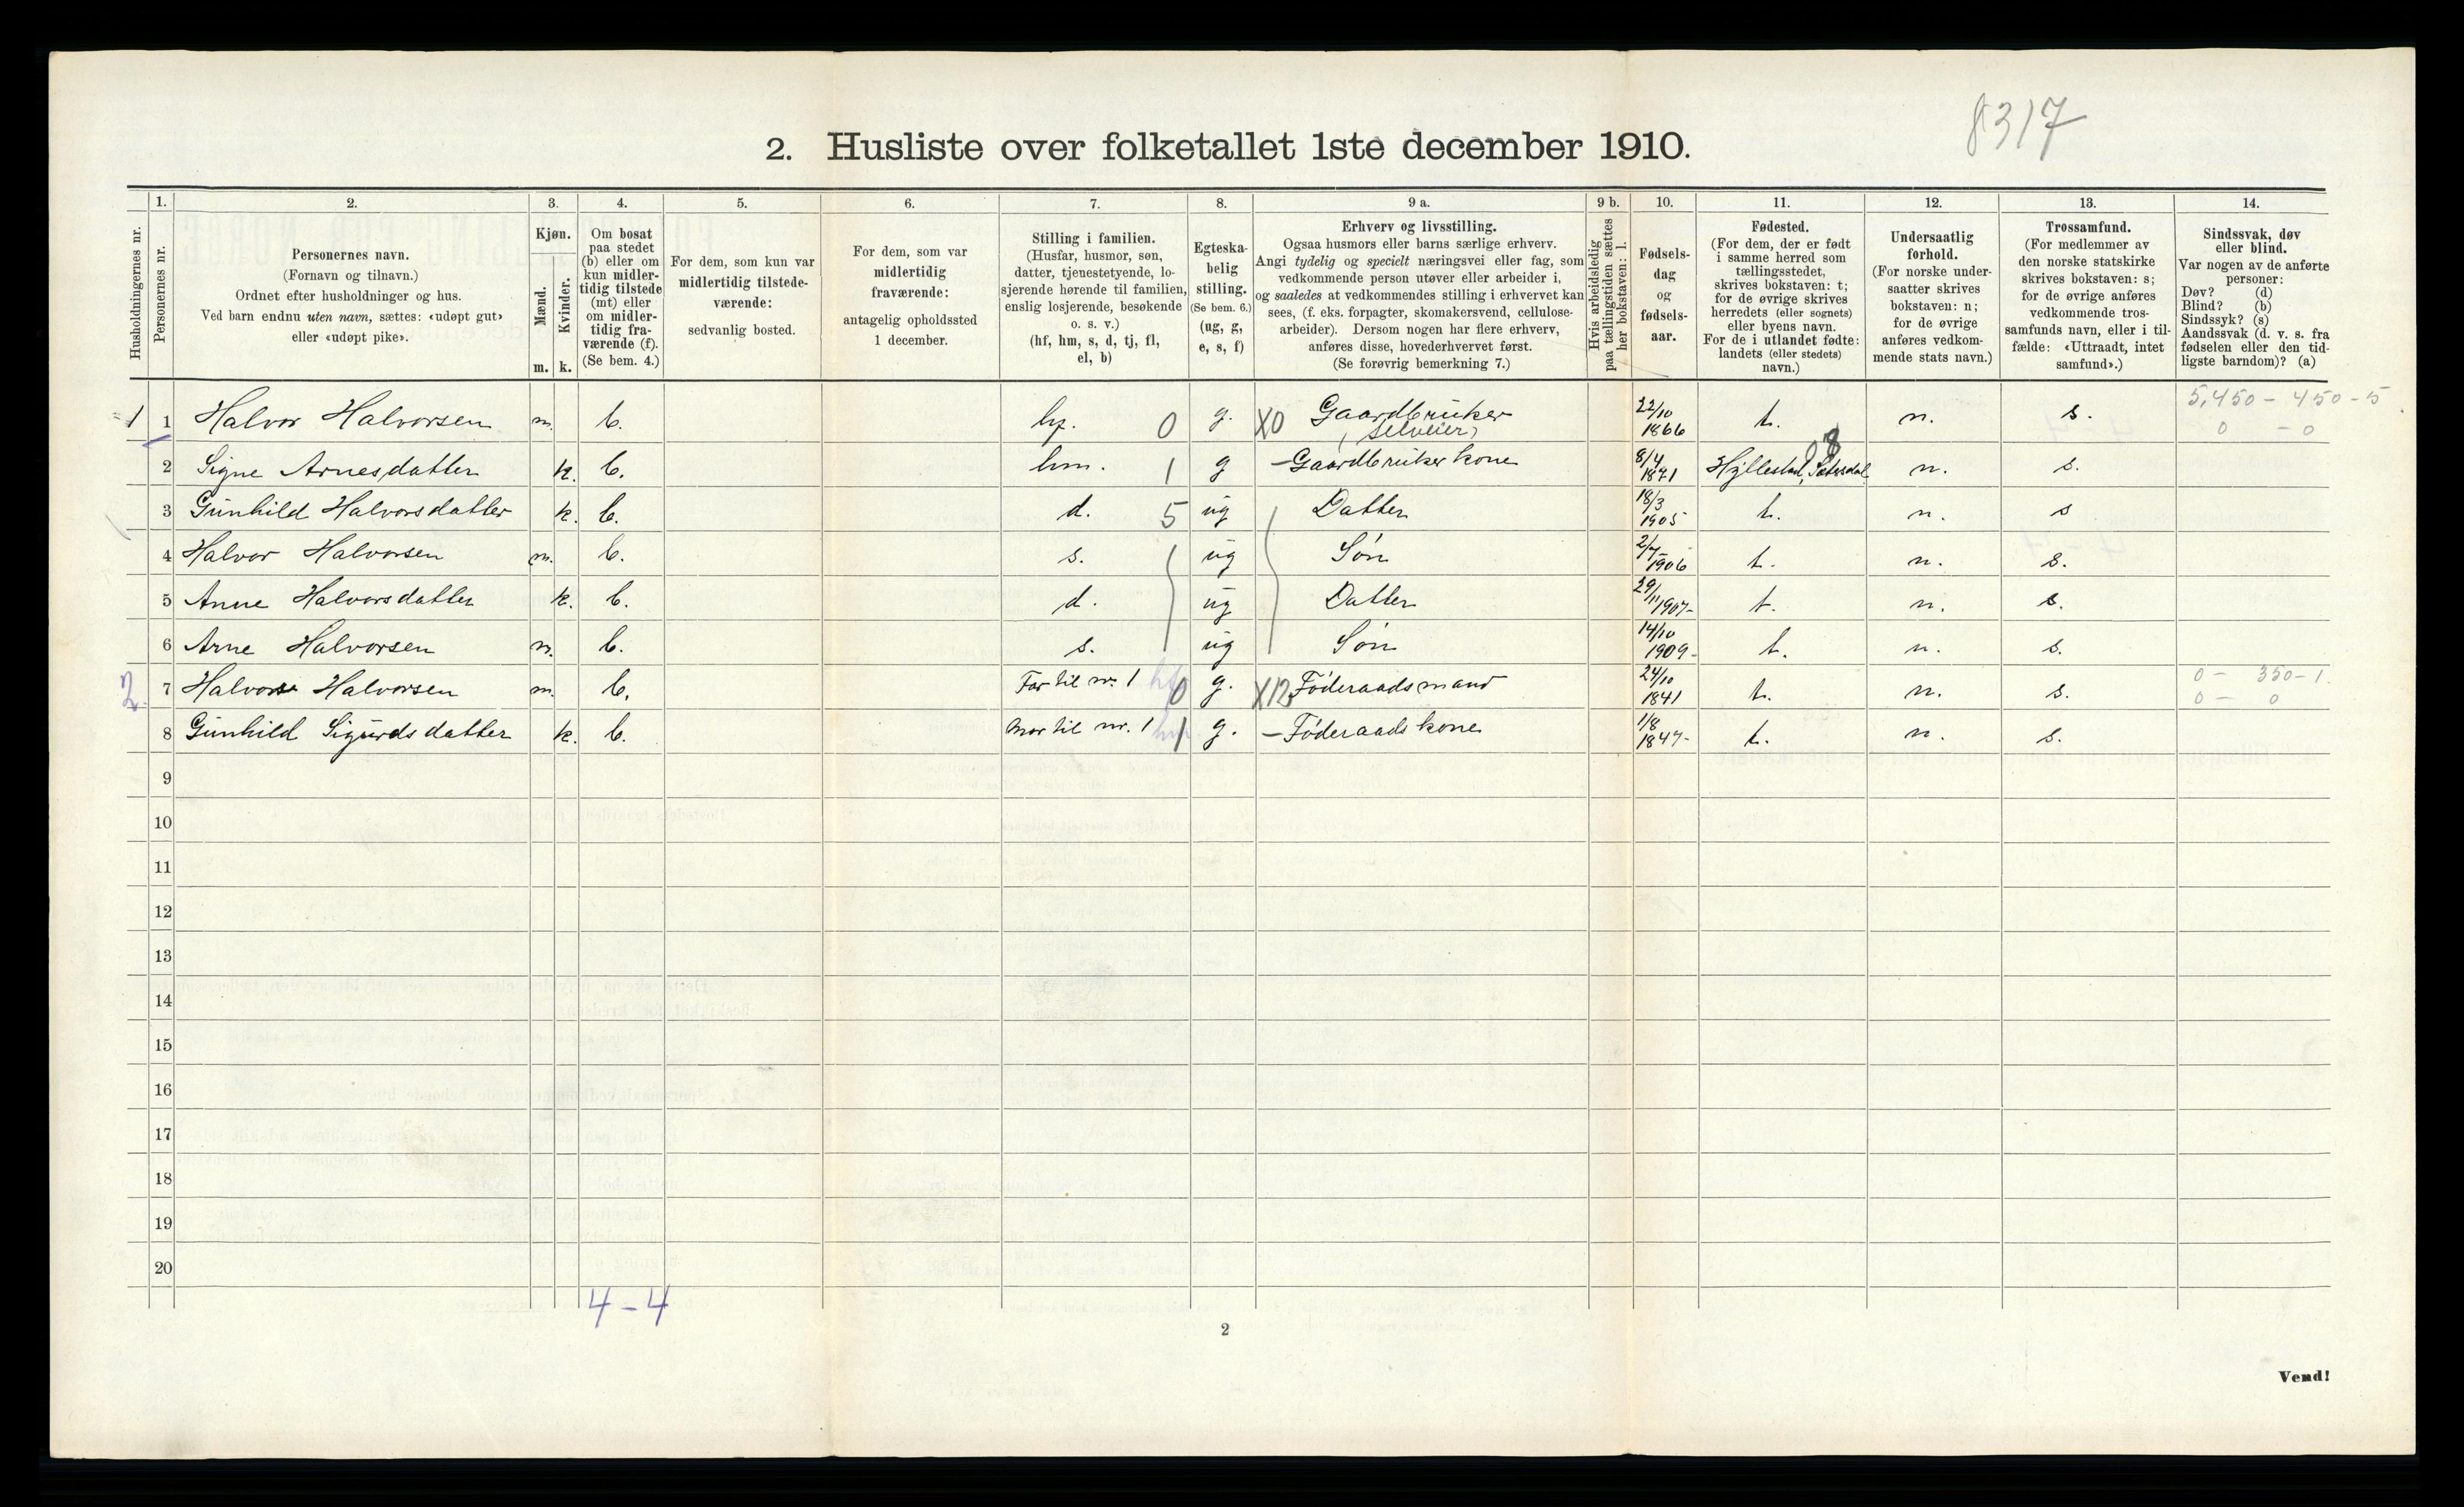 8317
2. Husliste over folketallet 1ste december 1910.
Husholdningernes nr.
1.
Personernes nr.
2.
Personernes navn.
(Fornavn og tilnavn.)
Ordnet efter husholdninger og hus.
Ved barn endnu uten navn, sættes: «udøpt gut»
eller «udøpt pike».
3.
Kjøn.
Mænd.
Kvinder.
m. k.
4.
Om bosat
paa stedet
(b) eller om
kun midler-
tidig tilstede
(mt) eller
om midler-
tidig fra-
værende (f).
(Se bem. 4.)
5.
For dem, som kun var
midlertidig tilstede-
værende:
sedvanlig bosted.
6.
For dem, som var
midlertidig
fraværende:
antagelig opholdssted
1 december.
7.
Stilling i familien.
(Husfar, husmor, søn,
datter, tjenestetyende, lo-
sjerende hørende til familien,
enslig losjerende, besøkende
o. s. v.)
(hf, hm, s, d, tj, fl,
el, b)
8.
Egteska-
belig
stilling.
(Se bem. 6.)
(ug, g,
e, s, f)
9 a.
Erhverv og livsstilling.
Ogsaa husmors eller barns særlige erhverv.
Angi tydelig og specielt næringsvei eller fag, som
vedkommende person utøver eller arbeider i,
og saaledes at vedkommendes stilling i erhvervet kan
sees, (f. eks. forpagter, skomakersvend, cellulose-
arbeider). Dersom nogen har flere erhverv,
anføres disse, hovederhvervet først.
(Se forøvrig bemerkning 7.)
9 b.
Hvis arbeidsledig
paa tællingstiden sættes
her bokstaven: l.
10.
Fødsels-
dag
og
fødsels-
aar.
11.
Fødested.
(For dem, der er født
i samme herred som
tællingsstedet,
skrives bokstaven: t;
for de øvrige skrives
herredets (eller sognets)
eller byens navn.
For de i utlandet fødte:
landets (eller stedets)
navn.)
12.
Undersaatlig
forhold.
(For norske under-
saatter skrives
bokstaven: n;
for de øvrige
anføres vedkom-
mende stats navn.)
13.
Trossamfund.
(For medlemmer av
den norske statskirke
skrives bokstaven: s;
for de øvrige anføres
vedkommende tros-
samfunds navn, eller i til-
fælde: «Uttraadt, intet
samfund».)
14.
Sindssvak, døv
eller blind.
Var nogen av de anførte
personer:
Døv? (d)
Blind? (b)
Sindssyk? (s)
Aandssvak (d. v. s. fra
fødselen eller den tid-
ligste barndom)? (a)
1 1 Halvor Halvorsen m. b. hf. 0 g. X0 Gaardbruker (selveier) 22/10 1866 t. n. s. 5,450 - 450 - 5
0 - 0
2 Signe Arnesdatter k. b. hm. 1 g - Gaardbruker kone 8/4 1871 Hyllestad, Sætersdal 8 n. s.
3 Gunhild Halvorsdatter k. b. d. 5 ug Datter 18/3 1905 t. n. s
4 Halvor Halvorsen m. b. s. ug Søn 2/7 1906 t. n. s.
5 Anne Halvorsdatter k. b. d. ug Datter 29/11 1907- t. n. s.
6 Arne Halvorsen m. b. s. ug Søn 14/10 1909- t. n. s.
2. 7 Halvor Halvorsen m. b. Far til nr. 1 hf 0 g. X12 Føderaadsmand 24/10 1841 t. n. s. 0 - 350 - 1.
0 - 0
8 Gunhild Sigurdsdatter k. b. Mor til nr. 1 hm 1 g. - Føderaadskone 1/8 1847- t. n. s.
9
10
11
12
13
14
15
16
17
18
19
20
4 - 4
2
Vend!